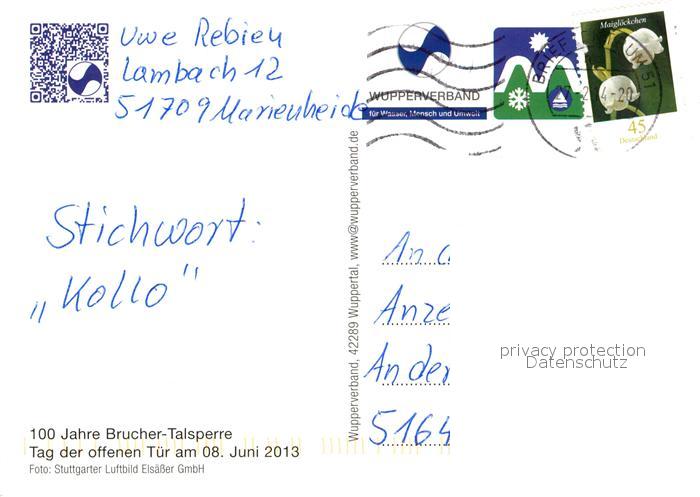 Uwe Rebieu
Lambach 12
51709 Marienheide
WUPPERVERBAND
für Wasser, Mensch und Umwelt
Maiglöckchen
45
Deutschland
Stichwort:
„Kollo"
Wupperverband, 42289 Wuppertal, www@wupperverband.de
An
Anze
Ander
5164
privacy protection
Datenschutz
100 Jahre Brucher-Talsperre
Tag der offenen Tür am 08. Juni 2013
Foto: Stuttgarter Luftbild Elsäßer GmbH